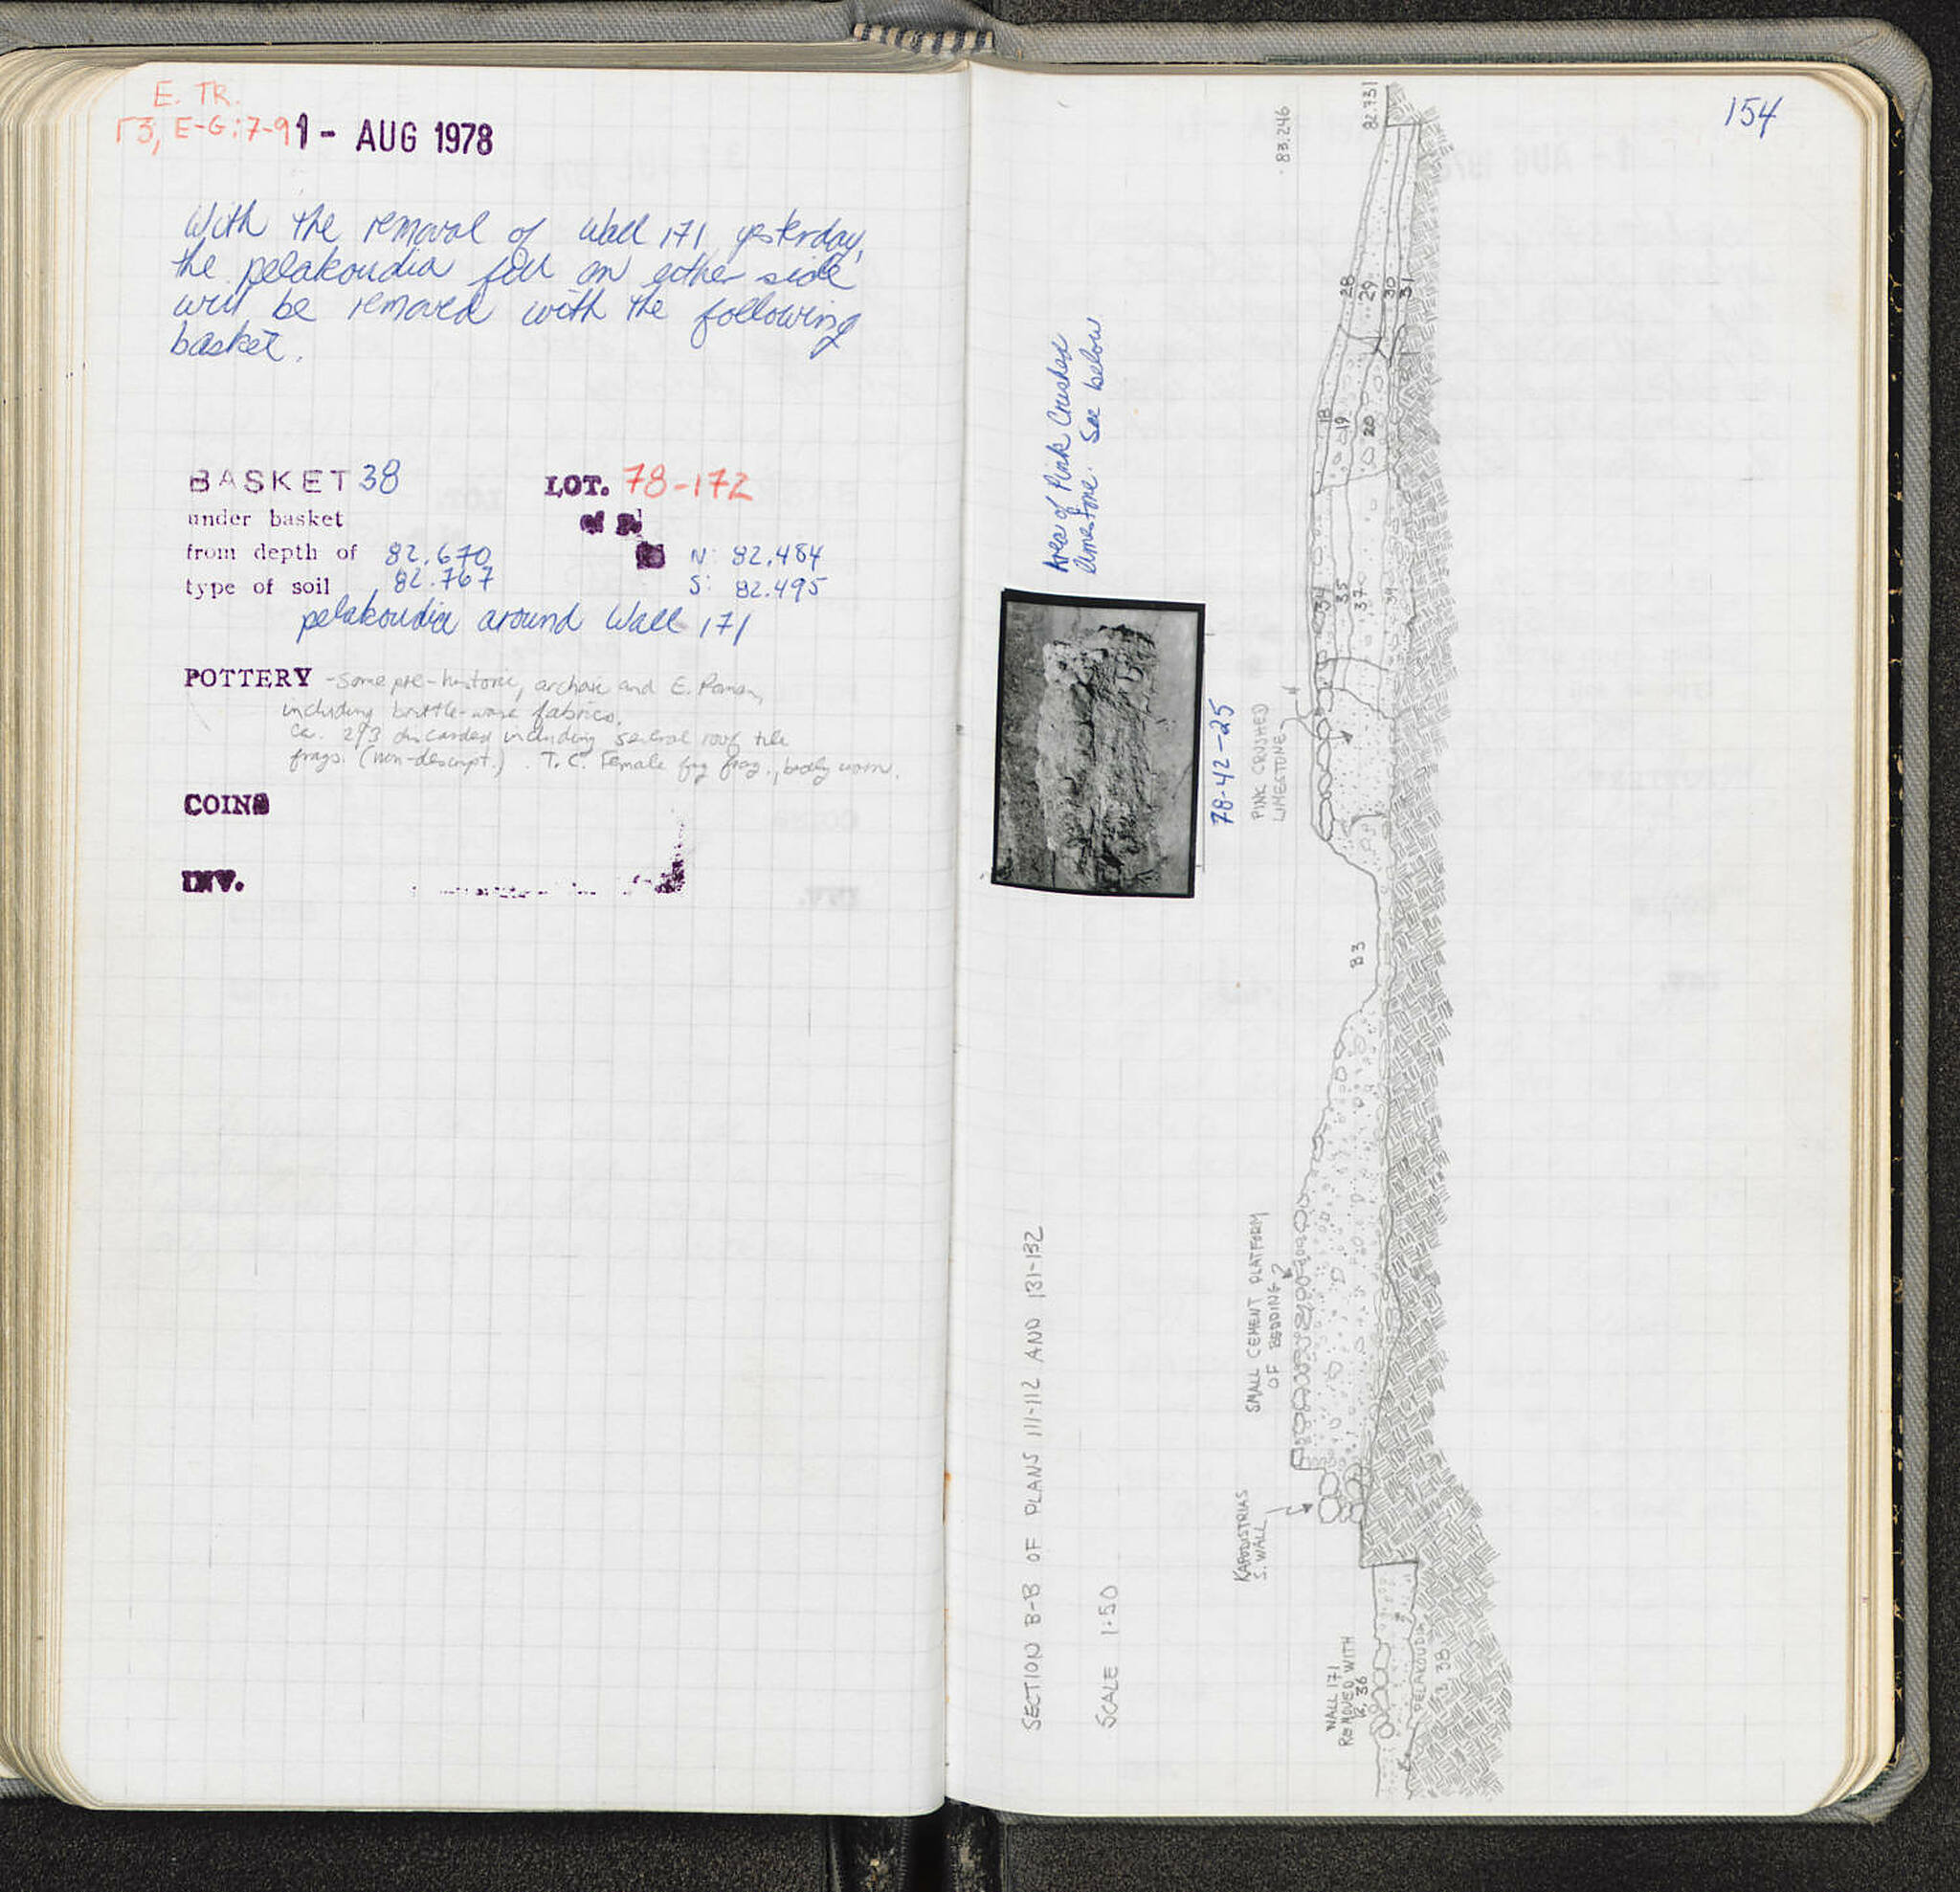 E. TR.
Γ3, E-G:7-9
1- AUG 1978
With the removal of Wall 171 yesterday,
the pelakoudia fill on either side
will be removed with the following
basket.
BASKET 38 LOT. 78-172
under basket
from depth of 82.670 N: 82.484
type of soil 82.767 S: 82.495
pelakoudia around Wall 171
POTTERY - Some pre-historic, archaic and E. Roman,
including brittle-ware fabrics.
Ca. 293 discarded including several roof tile
frags. (non-descript.). T.C. Female fig frag., badly worn.
COINS
INV.
154
83.246
82.731
28
29
30
31
18
19
20
34
35
37
39
Area of Pink Crushed
limestone. See below
78-42-25
PINK CRUSHED
LIMESTONE
33
SMALL CEMENT PLATFORM
OF BEDDING?
KAPODISTRIAS
S. WALL
WALL 171
REMOVED WITH
B. 36
PELAKOUDIA
B. 38
SECTION B-B OF PLANS 111-112 AND 131-132
SCALE 1:50